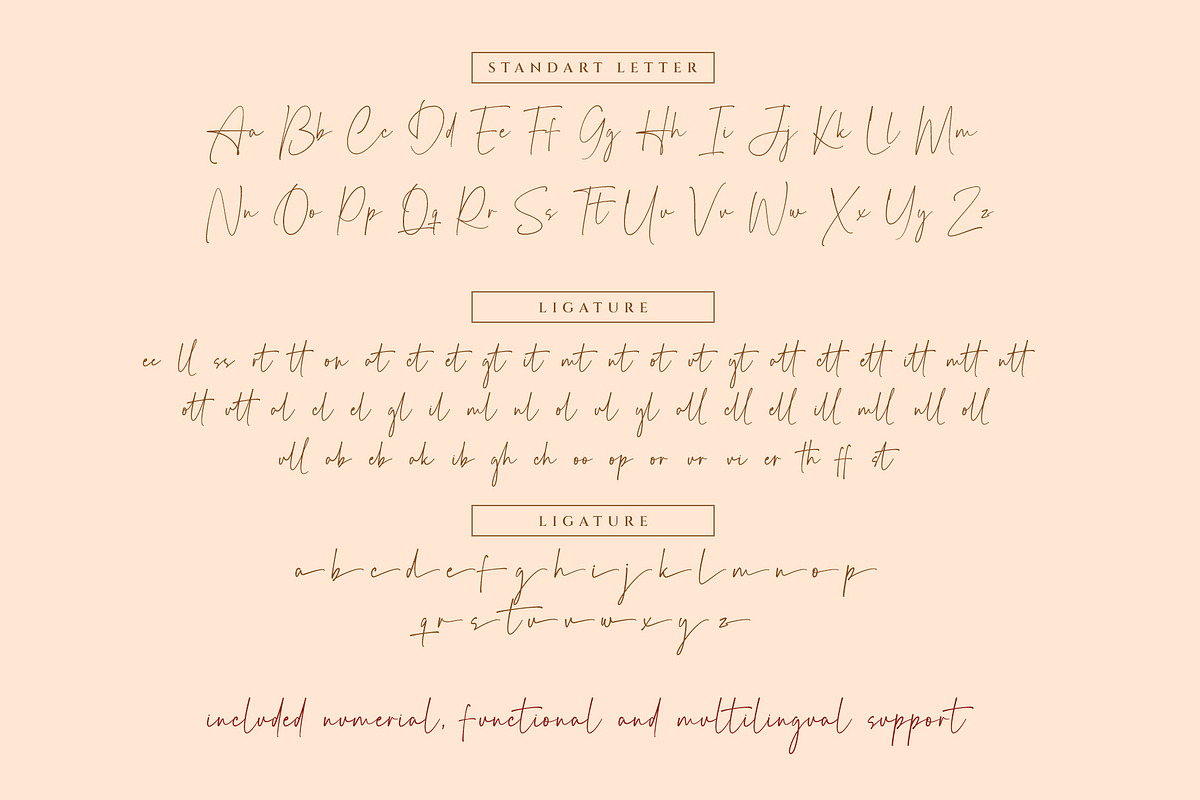 STANDART LETTER
Aa Bb Cc Dd Ee Ff Gg Hh Ii Jj Kk Ll Mm
Nn Oo Pp Qq Rr Ss Tt Uu Vv Ww Xx Yy Zz
LIGATURE
ee ll ss rt tt on at ct et gt it mt nt ot vt yt att ctt ett itt mtt ntt
ott vtt al cl el gl il ml nl ol vl yl all cll ell ill mll nll oll
vll ab eb ak ib gh ch oo op or ur vi er th ff st
LIGATURE
a b c d e f g h i j k l m n o p
q r s t u v w x y z
included numerial, functional and multilingual support